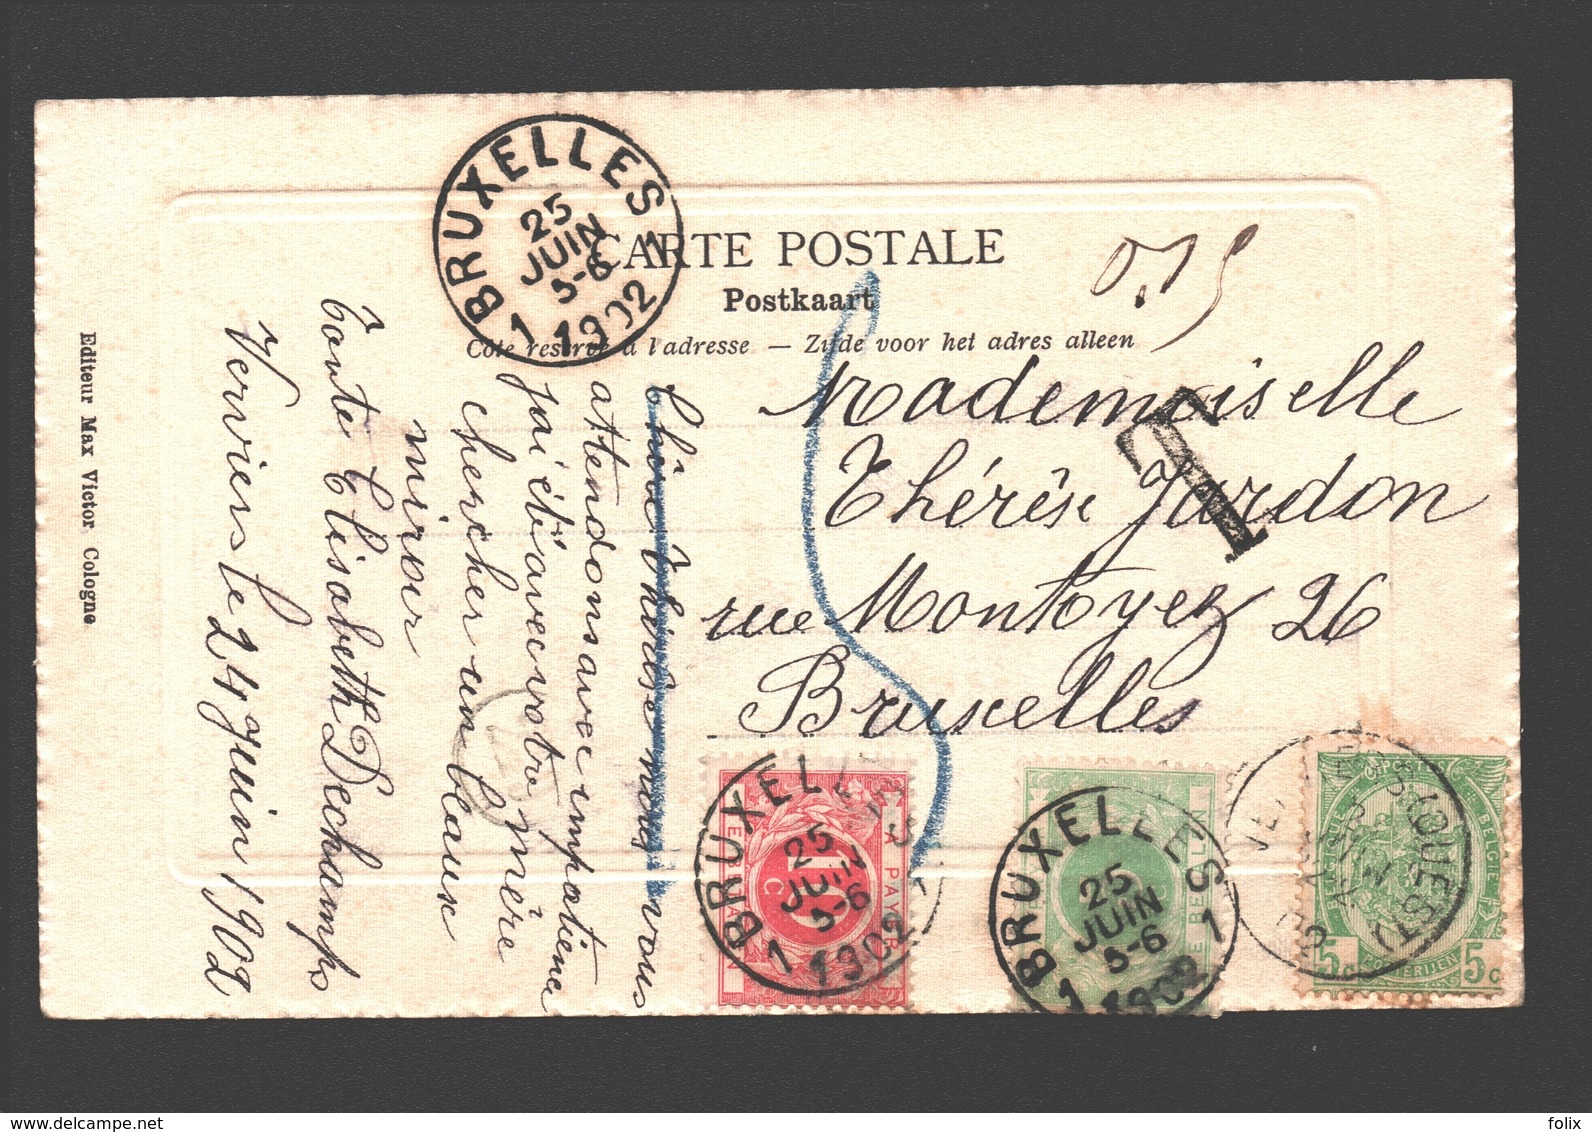 CARTE POSTALE
Postkaart
Côté réservé à l'adresse — Zijde voor het adres alleen
0.15
T
Mademoiselle
Thérèse Jardon
rue Montoyez 26
Bruxelles
Chère Thérèse nous vous
attendons avec impatience
j'ai été avec votre mère
chercher un beau
miroir
Tante Elisabeth Dechamps
Verviers le 24 juin 1902
Editeur Max Victor Cologne
BRUXELLES 1
25
JUIN
5-6
1902
BRUXELLES 1
25
JUIN
5-6
1902
A PAYER
10 C
TE BETALEN
BRUXELLES 1
25
JUIN
5-6
1902
VERVIERS (OUEST)
5c POSTERIJEN 5c
folix